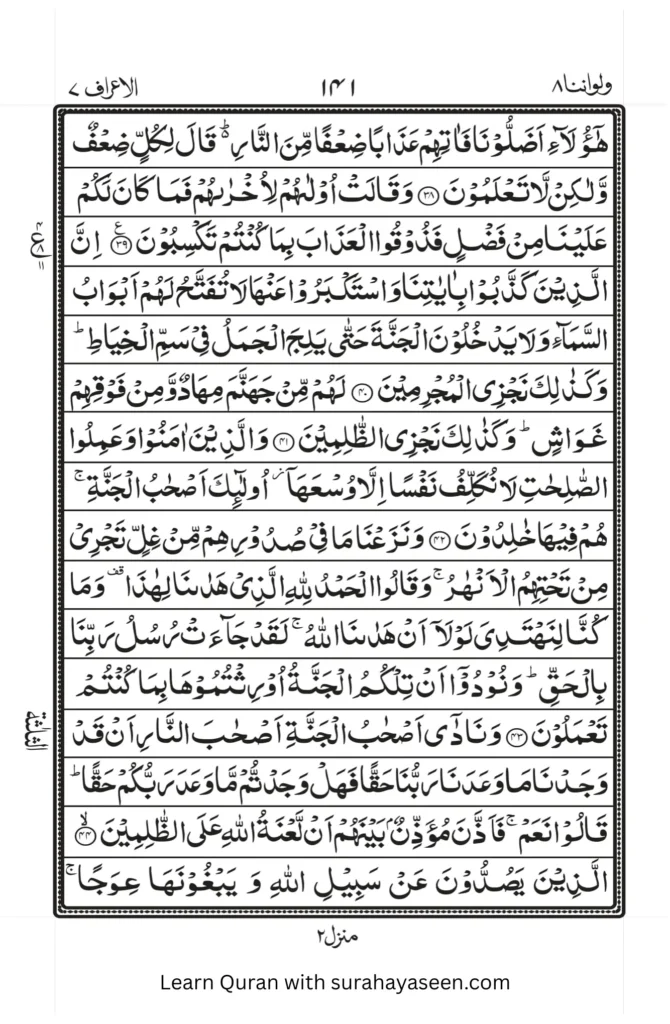 ولواننا ٨ ١٤١ الاعراف ٧
هٰٓؤُلَآءِ اَضَلُّوْنَا فَاٰتِهِمْ عَذَابًا ضِعْفًا مِّنَ النَّارِ ۬ؕ قَالَ لِكُلٍّ ضِعْفٌ
وَّلٰكِنْ لَّا تَعْلَمُوْنَ ﴿٣٨﴾ وَقَالَتْ اُوْلٰىهُمْ لِاُخْرٰىهُمْ فَمَا كَانَ لَكُمْ
عَلَيْنَا مِنْ فَضْلٍ فَذُوْقُوا الْعَذَابَ بِمَا كُنْتُمْ تَكْسِبُوْنَ ﴿٣٩﴾ ع اِنَّ
الَّذِيْنَ كَذَّبُوْا بِاٰيٰتِنَا وَاسْتَكْبَرُوْا عَنْهَا لَا تُفَتَّحُ لَهُمْ اَبْوَابُ
السَّمَآءِ وَلَا يَدْخُلُوْنَ الْجَنَّةَ حَتّٰى يَلِجَ الْجَمَلُ فِيْ سَمِّ الْخِيَاطِ ؕ
وَكَذٰلِكَ نَجْزِى الْمُجْرِمِيْنَ ﴿٤٠﴾ لَهُمْ مِّنْ جَهَنَّمَ مِهَادٌ وَّمِنْ فَوْقِهِمْ
غَوَاشٍ ؕ وَكَذٰلِكَ نَجْزِى الظّٰلِمِيْنَ ﴿٤١﴾ وَالَّذِيْنَ اٰمَنُوْا وَعَمِلُوا
الصّٰلِحٰتِ لَا نُكَلِّفُ نَفْسًا اِلَّا وُسْعَهَاۤ ؗ اُولٰٓئِكَ اَصْحٰبُ الْجَنَّةِ ۚ
هُمْ فِيْهَا خٰلِدُوْنَ ﴿٤٢﴾ وَنَزَعْنَا مَا فِيْ صُدُوْرِهِمْ مِّنْ غِلٍّ تَجْرِيْ
مِنْ تَحْتِهِمُ الْاَنْهٰرُ ۚ وَقَالُوا الْحَمْدُ لِلّٰهِ الَّذِيْ هَدٰىنَا لِهٰذَا ۟ وَمَا
كُنَّا لِنَهْتَدِيَ لَوْلَاۤ اَنْ هَدٰىنَا اللّٰهُ ۚ لَقَدْ جَآءَتْ رُسُلُ رَبِّنَا
بِالْحَقِّ ؕ وَنُوْدُوْۤا اَنْ تِلْكُمُ الْجَنَّةُ اُوْرِثْتُمُوْهَا بِمَا كُنْتُمْ
تَعْمَلُوْنَ ﴿٤٣﴾ وَنَادٰۤى اَصْحٰبُ الْجَنَّةِ اَصْحٰبَ النَّارِ اَنْ قَدْ
وَجَدْنَا مَا وَعَدَنَا رَبُّنَا حَقًّا فَهَلْ وَجَدْتُّمْ مَّا وَعَدَ رَبُّكُمْ حَقًّا ؕ
قَالُوْا نَعَمْ ۚ فَاَذَّنَ مُؤَذِّنٌۢ بَيْنَهُمْ اَنْ لَّعْنَةُ اللّٰهِ عَلَى الظّٰلِمِيْنَ ﴿٤٤﴾ۙ
الَّذِيْنَ يَصُدُّوْنَ عَنْ سَبِيْلِ اللّٰهِ وَ يَبْغُوْنَهَا عِوَجًا ۚ
الثلثة
منزل ٢
Learn Quran with surahayaseen.com